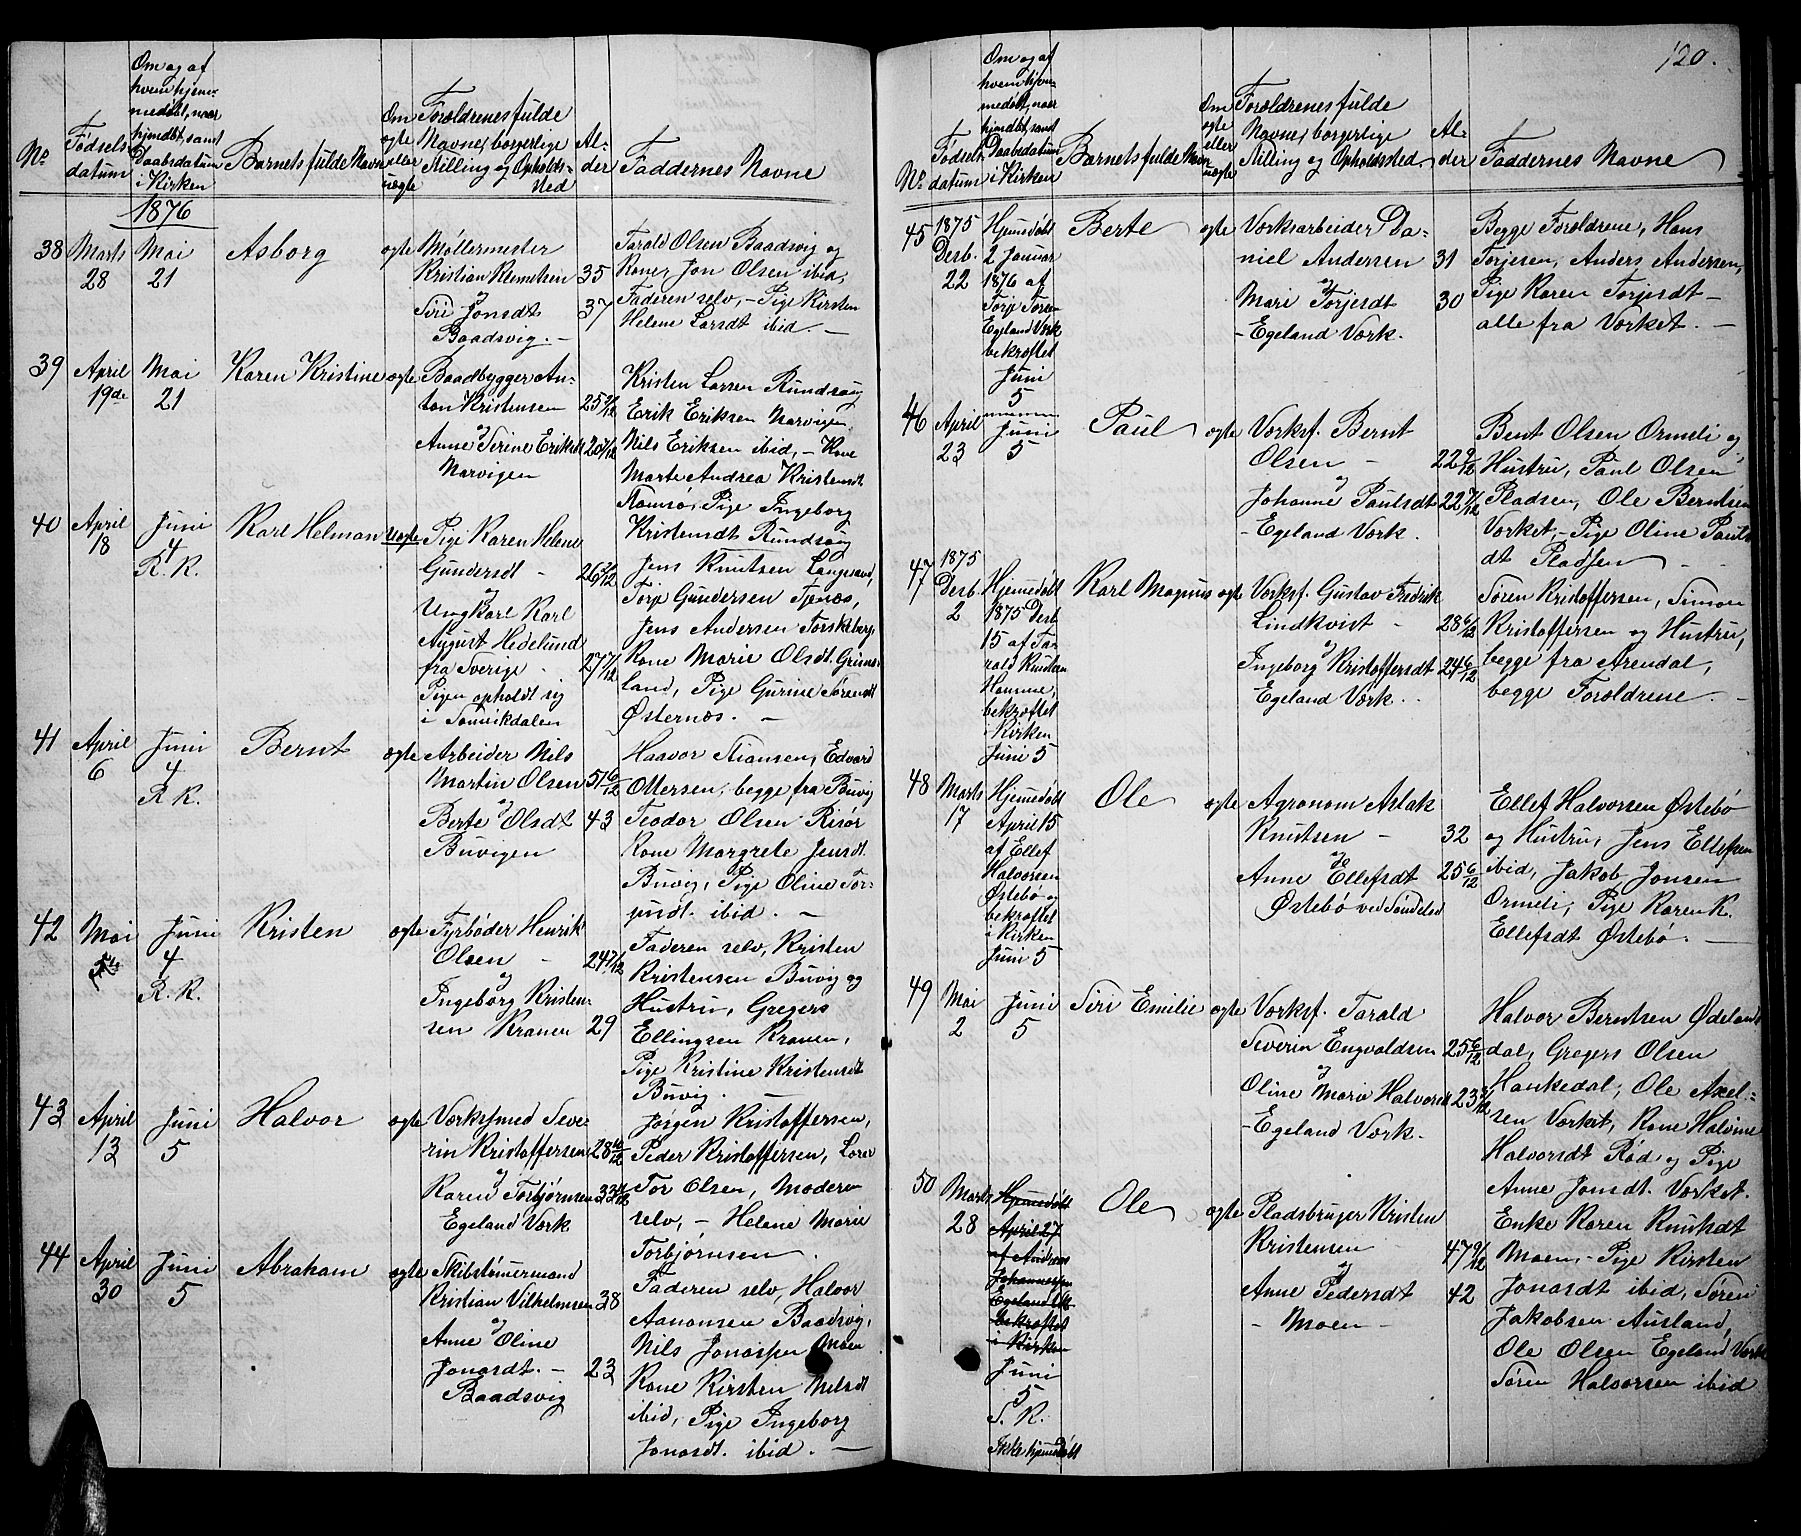 120.
No
Fødsels-
datum
Om og af
hvem hjem-
medøbt, naar
hjmdøbt, samt
Daabsdatum
i Kirken
Barnets fulde Navn
Om
ægte
eller
uægte
Forældrenes fulde
Navne, borgerlige
Stilling og Opholds-
sted
Al-
der
Faddernes Navne
1876
38 Marts
28
Mai
21
Asborg
ægte
Møllermester
Kristian Knudsen 35
og
Siri Jonsdt 37
Baadsvig. -
Tarald Olsen Baadsvig og
Kone, Jon Olsen ibid,
Faderen selv, - Pige Kirsten
Helene Larsdt ibid. -
39 April
19de
Mai
21
Karen Kristine
ægte
Baadbygger An-
ton Kristensen
og
Anne Serine Eriksdt
Narvigen
Kristen Larsen Rundsaug
Erik Eriksen Narvigen,
Nils Eriksen ibid, - Kone
Marte Andrea Kristensdt
Pige Ingeborg
Kristensdt Rundsaug
40 April
18
Juni
4
R. K.
Karl Helman
uægte
Pige Karen Helene
Gundersdt - 26 3/12
og
Ungkarl Karl
August Hedelund
fra Sverige - 27 7/12
Pigen opholdt sig
i Sønvikdalen
Jens Knutsen Langesand,
Torje Gundersen Tjenæs,
Jens Andersen Torskeberg,
Kone Marie Olsdt. Grims-
land, Pige Gurine Sørensdt
Østernæs. -
41 April
6
Juni
4
R. K.
Bernt
ægte
Arbeider Nils
Martin Olsen 51 6/12
og
Berte Olsdt 43
Buvigen
Haavor Stiansen, Edvard
Ottersen, begge fra Buvig
Teodor Olsen Risør
Kone Margrete Jensdt.
Buvig, Pige Oline Tor-
jusdt. ibid. -
42 Mai
Juni
4
R. K.
Kristen
ægte
Fyrbøder Henrik
Olsen - 24 7/12
og
Ingeborg Kristen-
sen Kranen 29
Faderen selv, Kristen
Kristensen Buvig og
Hustru, Gregers
Ellingsen Kranen,
Pige Kristine Kristensdt
Buvig. -
43 April
13
Juni
5
Halvor
ægte
Værkssmed Seve-
rin Kristoffersen 28 10/12
og
Karen Torbjørnsen
Egeland Værk
Jørgen Kristoffersen,
Peder Kristoffersen, Lærer
Tor Olsen, Moderen
selv, - Helene Marie
Torbjørnsen.
44 April
30
Juni
5
Abraham
ægte
Skibstømmermand
Kristian Vilhelmsen 38
og
Anne Oline
Jonasdt. - 23
Baadsvig
Faderen selv, Halvor
Aanonsen Baadsvig,
Nils Jonassen Moen
Kone Kirsten Nilsdt
ibid, Pige Ingeborg
Jonasdt. ibid. -
No
Fødsels-
datum
Om og af
hvem hjem-
medøbt, naar
hjmdøbt, samt
Daabsdatum
i Kirken
Barnets fulde Navn
Om
ægte
eller
uægte
Forældrenes fulde
Navne, borgerlige
Stilling og Opholdssted
Al-
der
Faddernes Navne
45 1875
Desb.
22
Hjemdøbt
2 Januar
1876 af
Torje Toren
Egeland Værk
bekræftet
Juni
5
Berte
ægte
Værksarbeider Da-
niel Andersen 31
og
Mari Torjesdt 30
- Egeland Værk.
Begge Forældrene, Hans
Torjesen, Anders Andersen,
Pige Karen Torjesdt -
alle fra Værket. -
46 April
23
Juni
5
Paul
ægte
Værksf. Bernt
Olsen - 22 9/12
og
Johanne Paulsdt 22 7/12
- Egeland Værk.
Bent Olsen Ormeli og
Hustru, Paul Olsen
Pladsen, Ole Berntsen
Værket, - Pige Oline Pauls-
dt Pladsen -
47 1875
Desb.
2
Hjemdøbt
1875 Desb
15 af Ta-
rald Knutsen
Hamme,
bekræftet
Kirken
Juni 5
Karl Magnus
ægte
Værksf. Gustav Fredrik
Lindkvist - 28 6/12
og
Ingeborg Kristoffersdt 24 6/12
Egeland Værk.
Søren Kristoffersen, Simon
Kristoffersen og Hustru,
begge fra Arendal,
begge Forældrene -
48 Marts
17
Hjemdøbt
April 15
af Ellef
Halvorsen
Østebø og
bekræftet
i Kirken
Juni 5
Ole
ægte
Agronom Aslak
Knutsen - 32
og
Anne Ellefsdt 25 6/12
Østebø ved Søndeled
Ellef Halvorsen Østebø
og Hustru, Jens Ellefsen
ibid, Jakob Jonsen
Ormeli, Pige Karen K.
Ellefsdt Østebø. -
49 Mai
2
Juni
5
Siri Emilie
ægte
Værksf. Tarald
Severin Engvaldsen 25 6/12
og
Oline Marie Halvorsdt
- Egeland Værk.
Halvor Berntsen Ødelands-
dal, Gregers Olsen
Haukedal, Ole Axel-
sen Værket, Kone Halvine
Halvorsdt Rød, og Pige
Anne Jonsdt. Værket.
50 Marts
28
Hjemdøbt
April 27
af Anders
Johannessen
Egeland Vk
bekræftet
i Kirken
Juni
5
S. K.
Ikke hjemdøbt
Ole
ægte
Pladsbruger Kristen
Kristensen 47 9/12
og
Anne Pedersdt 42
- Moen -
Enke Karen Knutsdt
Moen, - Pige Kirsten
Jonasdt ibid, Søren
Jakobsen Ausland,
Ole Olsen Egeland Værk
Søren Halvorsen ibid